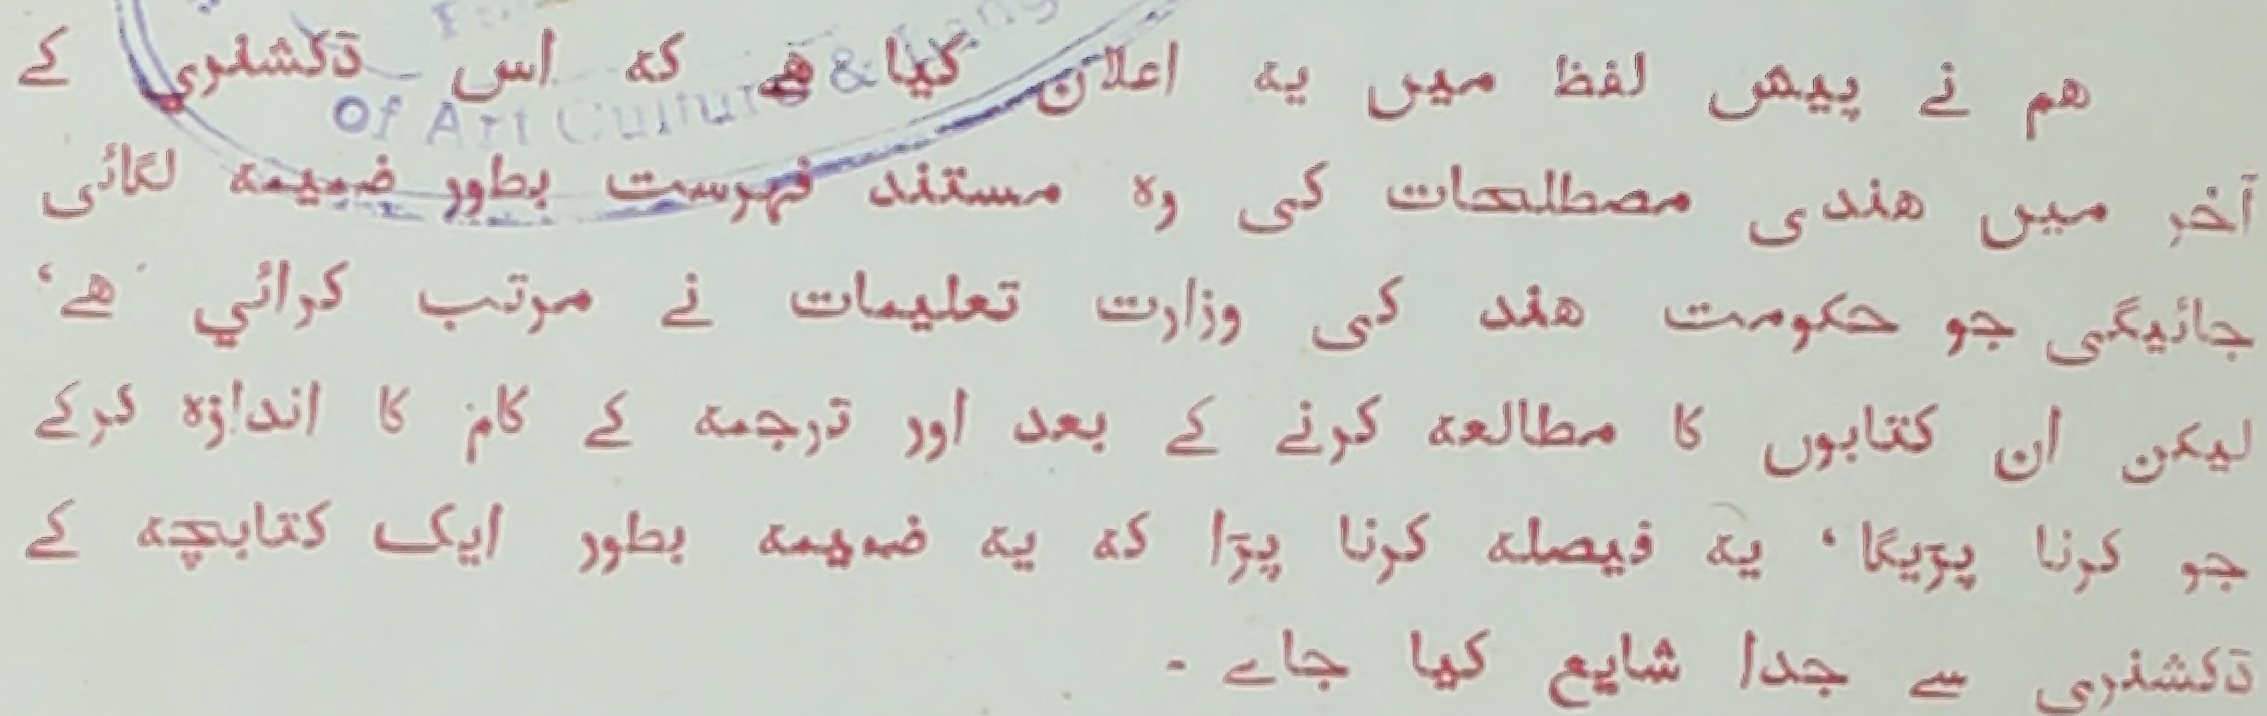 Of Art Culture & Lang
هم نے پیش لفظ میں یہ اعلان کیا ہے کہ اس ڈکشنری کے
آخر میں ہندی مصطلحات کی وہ مستند فہرست بطور ضمیمہ لگائی
جائیگی جو حکومت ہند کی وزارت تعلیمات نے مرتب کرائی ہے‘
لیکن ان کتابوں کا مطالعہ کرنے کے بعد اور ترجمہ کے کام کا اندازہ کرکے
جو کرنا پڑیگا‘ یہ فیصلہ کرنا پڑا کہ یہ ضمیمہ بطور ایک کتابچہ کے
ڈکشنری سے جدا شایع کیا جاے -